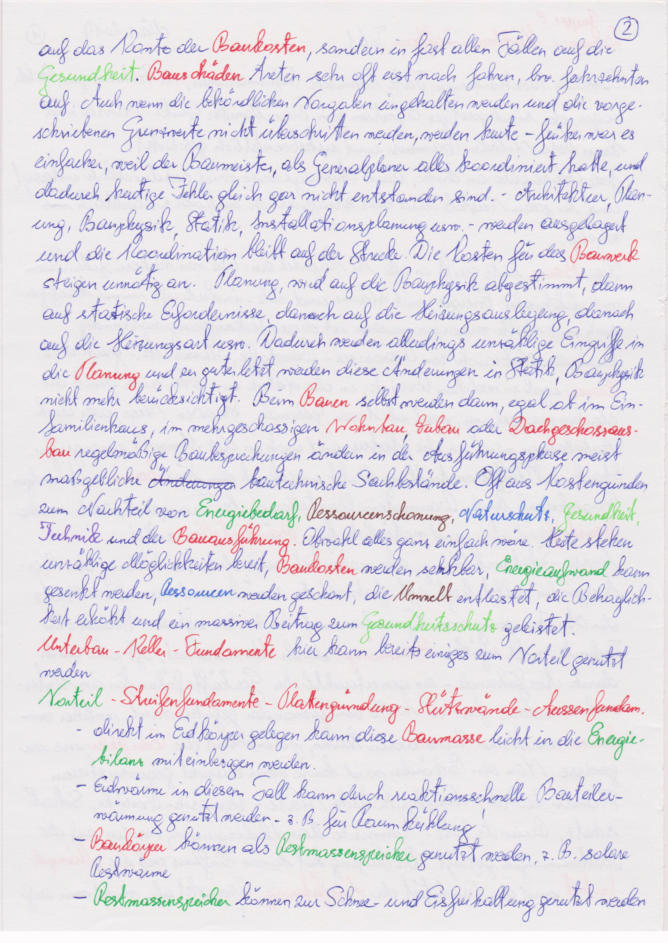 2
auf das Konto der Baukosten, sondern in fast allen Fällen auf die
Gesundheit. Bauschäden treten sehr oft erst nach Jahren, bzw. Jahrzehnten
auf. Auch wenn die behördlichen Vorgaben eingehalten werden und die vorge-
schriebenen Grenzwerte nicht überschritten werden, werden heute - früher war es
einfacher, weil der Baumeister, als Generalplaner alles koordiniert hatte, und
dadurch heutige Fehler gleich gar nicht entstanden sind. - Architektur, Plan-
ung, Bauphysik, Statik, Installationsplanung usw. - werden ausgelagert
und die Koordination bleibt auf der Strecke. Die Kosten für das Bauwerk
steigen unnötig an. Planung, wird auf die Bauphysik abgestimmt, dann
auf statische Erfordernisse, danach auf die Heizungsauslegung, danach
auf die Heizungsart usw. Dadurch werden allerdings unzählige Eingriffe in
die Planung und zu guter letzt werden diese Änderungen in Statik, Bauphysik
nicht mehr berücksichtigt. Beim Bauen selbst werden dann, egal ob im Ein-
familienhaus, im mehrgeschossigen Wohnbau, Zubau oder Dachgeschossaus-
bau regelmäßige Baubesprechungen ändern in der Ausführungsphase meist
maßgebliche Änderungen bautechnische Sachbestände. Oft aus Kostengründen
zum Nachteil von Energiebedarf, Ressourcenschonung, Naturschutz, Gesundheit,
Technik und der Bauausführung. Obwohl alles ganz einfach wäre. Heute stehen
unzählige Möglichkeiten bereit, Baukosten werden senkbar, Energieaufwand kann
gesenkt werden, Ressourcen werden geschont, die Umwelt entlastet, die Behaglich-
keit erhöht und ein massiver Beitrag zum Gesundheitsschutz geleistet.
Unterbau - Keller - Fundamente hier kann bereits einiges zum Vorteil genutzt
werden
Vorteil - Streifenfundamente - Plattengründung - Stützwände - Aussenfundam.
- direkt im Erdkörper gelegen kann diese Baumasse leicht in die Energie-
bilanz miteinbezogen werden.
- Erdwärme in diesem Fall kann durch reaktionsschnelle Bauteiler-
wärmung genutzt werden - z.B. für Raumkühlung!
- Baukörper können als Restmassenspeicher genutzt werden, z.B. solare
Restwärme
- Restmassenspeicher können zur Schnee- und Eisfreihaltung genutzt werden